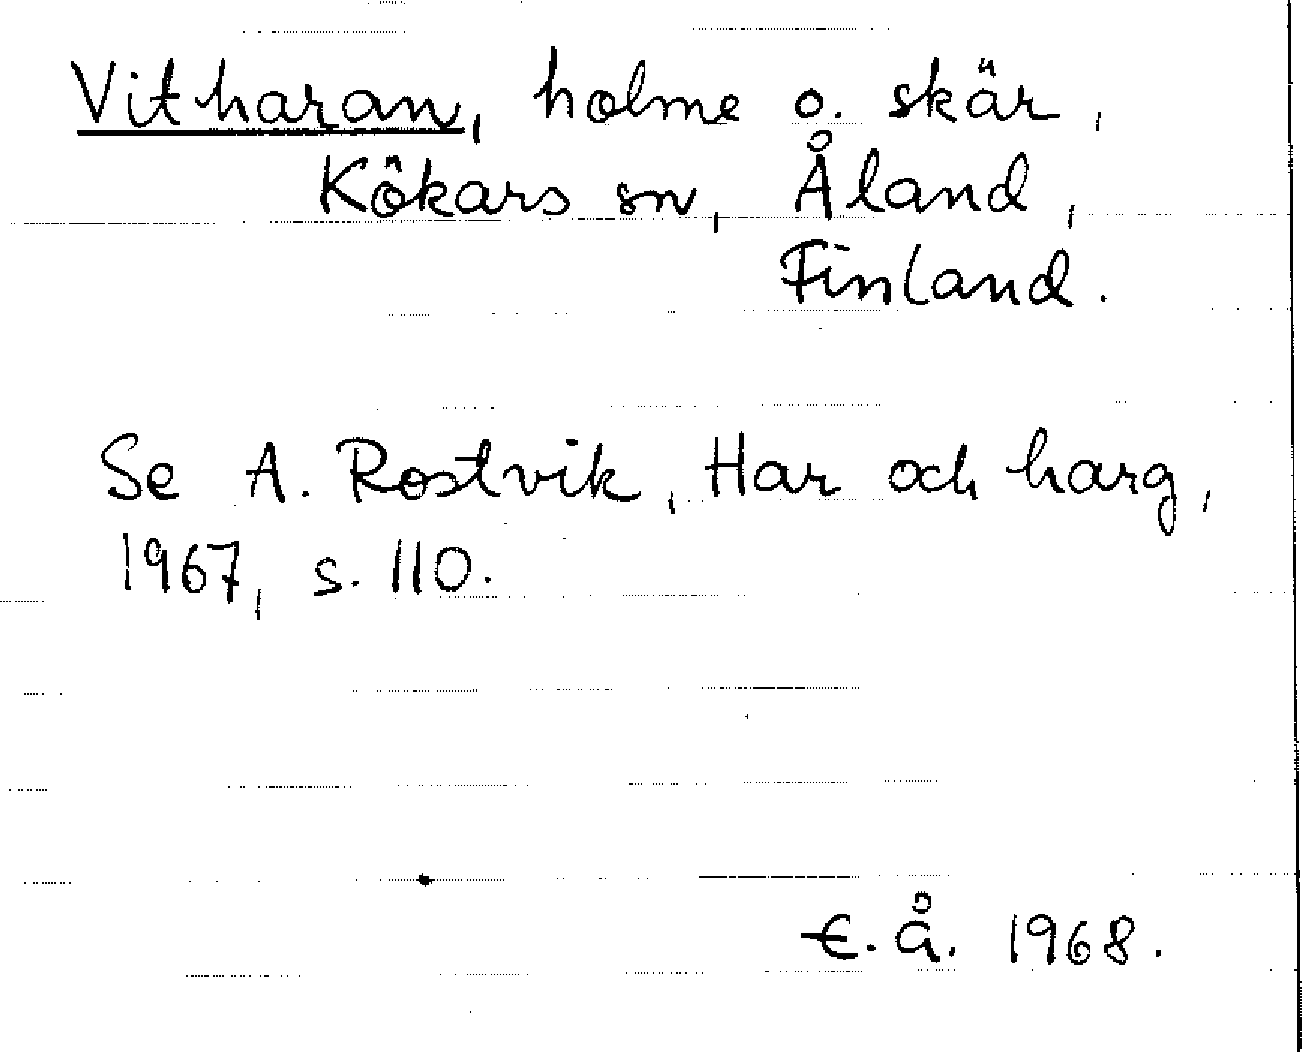 Vitharan, holme o. skär,
Kökars sn, Åland,
Finland.
Se A. Rostvik, Har och harg,
1967, s. 110.
E. Å. 1968.